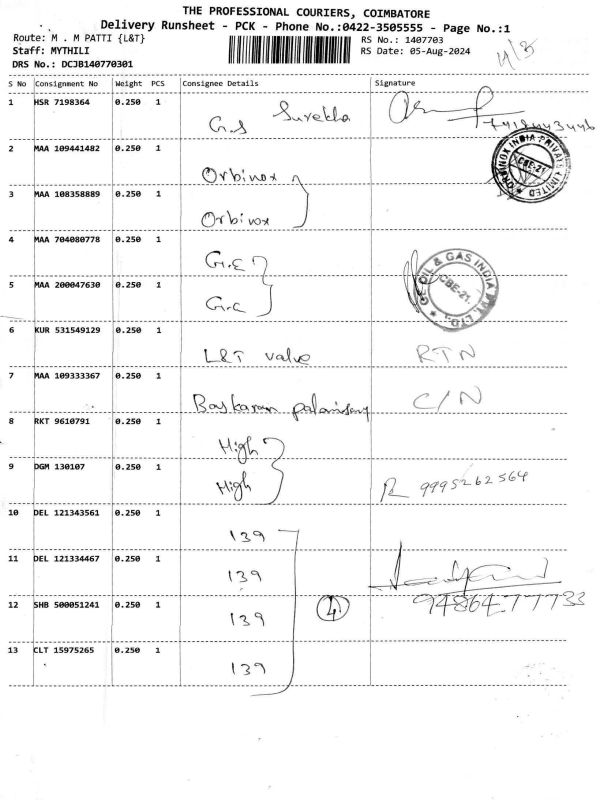 THE PROFESSIONAL COURIERS, COIMBATORE
Delivery Runsheet - PCK - Phone No.:0422-3505555 - Page No.:1
Route: M . M PATTI {L&T}
Staff: MYTHILI
DRS No.: DCJB140770301
RS No.: 1407703
RS Date: 05-Aug-2024
S No Consignment No Weight PCS Consignee Details Signature
1 HSR 7198364 0.250 1
G.S Surekha
2 MAA 109441482 0.250 1
Orbinox
ORBINOX INDIA PRIVATE LIMITED
CBE-21
3 MAA 108358889 0.250 1
Orbinox
4 MAA 704080778 0.250 1
G.E
GE OIL & GAS INDIA PVT. LTD.
CBE-21.
5 MAA 200047630 0.250 1
6 KUR 531549129 0.250 1
L&T valve RTN
7 MAA 109333367 0.250 1
Baskaran C/N
8 RKT 9610791 0.250 1
High
9 DGM 130107 0.250 1
High 9995262564
10 DEL 121343561 0.250 1
139
11 DEL 121334467 0.250 1
139
12 SHB 500051241 0.250 1
139 4 9486477733
13 CLT 15975265 0.250 1
139